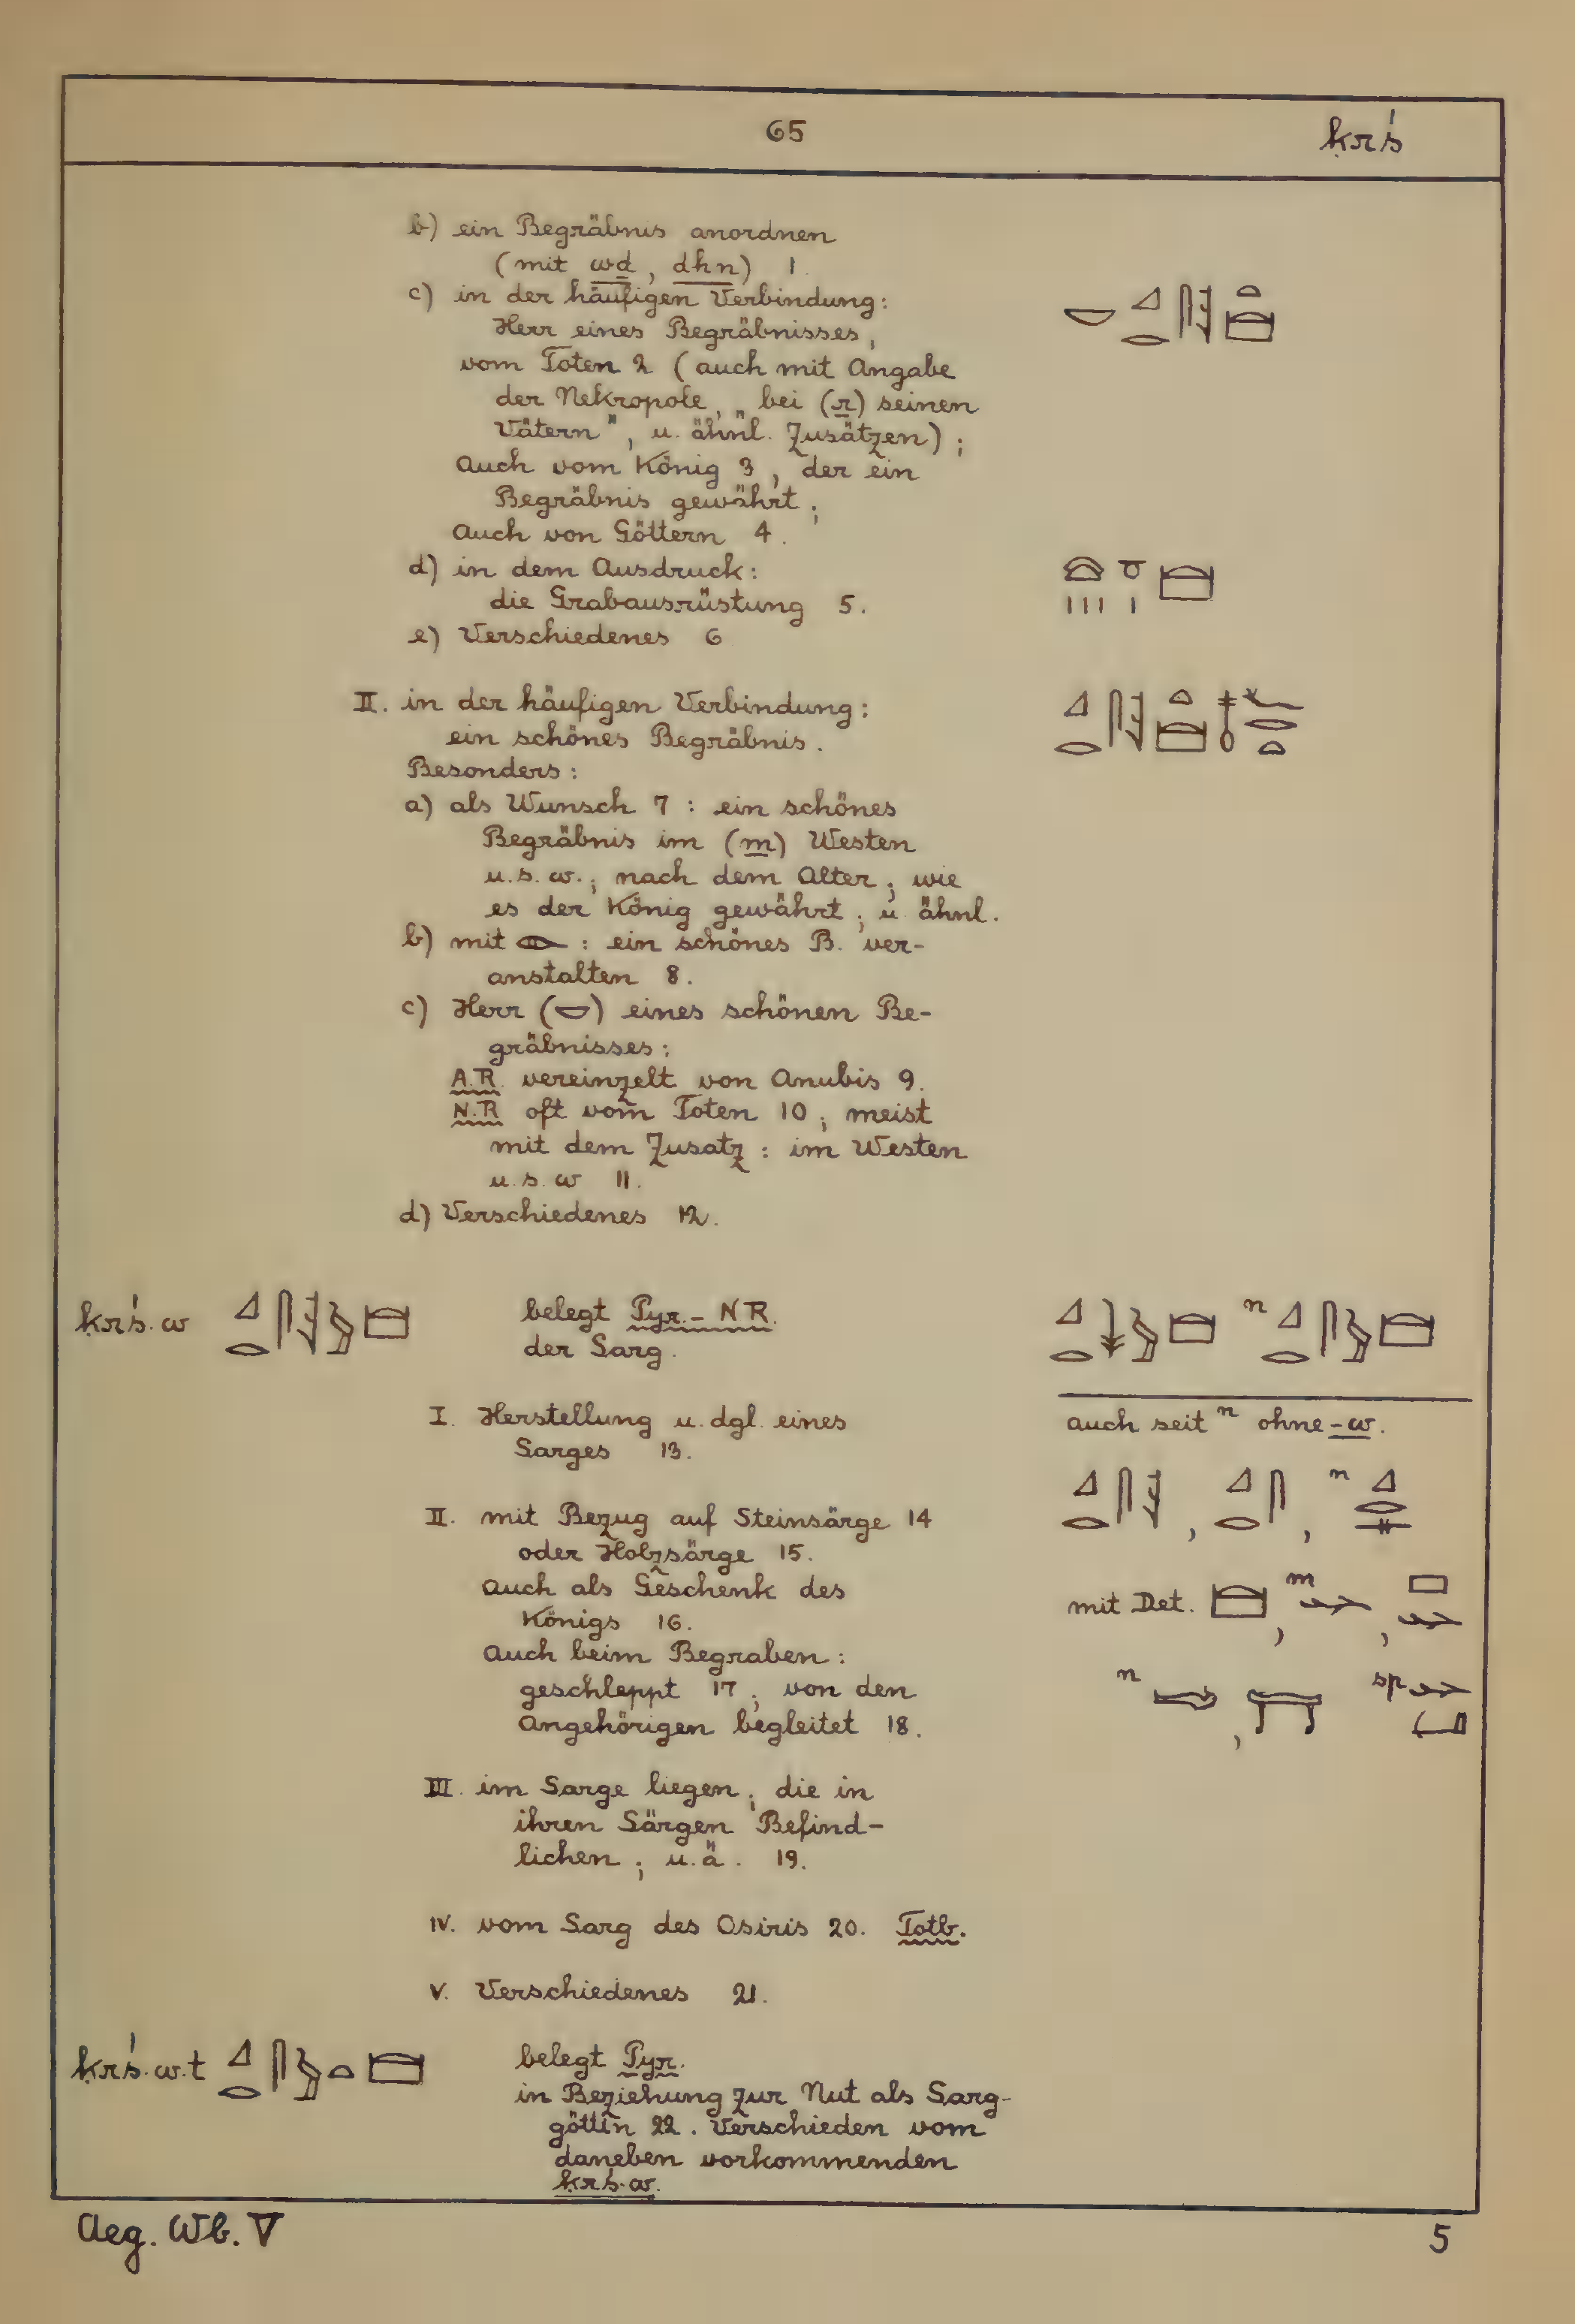 65
ḳrś
b) ein Begräbnis anordnen
(mit wḏ, dhn) 1
c) in der häufigen Verbindung:
Herr eines Begräbnisses,
vom Toten 2 (auch mit Angabe
der Nekropole, „bei (r) seinen
Vätern", u. ähnl. Zusätzen);
Auch vom König 3, der ein
Begräbnis gewährt;
Auch von Göttern 4.
d) in dem Ausdruck:
die Grabausrüstung 5.
e) Verschiedenes 6
II. in der häufigen Verbindung:
ein schönes Begräbnis.
Besonders:
a) als Wunsch 7: ein schönes
Begräbnis im (m) Westen
u.s.w.; nach dem Alter; wie
es der König gewährt; u. ähnl.
b) mit : ein schönes B. ver-
anstalten 8.
c) Herr () eines schönen Be-
gräbnisses:
A.R. vereinzelt von Anubis 9.
N.R oft vom Toten 10; meist
mit dem Zusatz: im Westen
u.s.w 11.
d) Verschiedenes 12.
ḳrś.w belegt Pyr. - N R.
der Sarg.
n
I. Herstellung u. dgl. eines
Sarges 13.
auch seit n ohne -w.
II. mit Bezug auf Steinsärge 14
oder Holzsärge 15.
Auch als Geschenk des
Königs 16.
Auch beim Begraben:
geschleppt 17; von den
Angehörigen begleitet 18.
, , n
mit Det. , m ,
n , sp
III. im Sarge liegen; die in
ihren Särgen Befind-
lichen; u.ä. 19.
IV. vom Sarg des Osiris 20. Totb.
V. Verschiedenes 21.
ḳrś.w.t belegt Pyr.
in Beziehung zur Nut als Sarg-
göttin 22. Verschieden vom
daneben vorkommenden
ḳrś.w.
Aeg. Wb. V
5